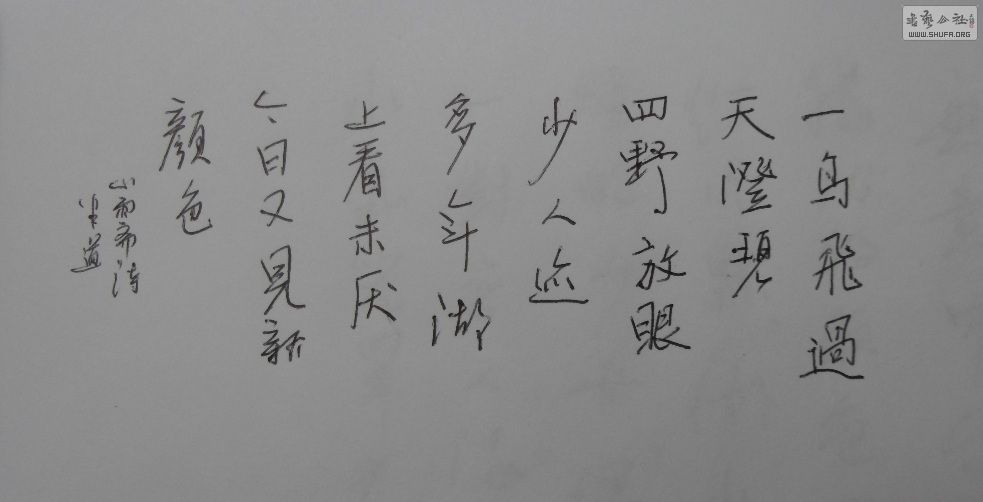 一鸟飛過
天澄碧
四野放眼
少人迹
多年湖
上看未厌
今日又見新
顔色
小雨斋诗
坐道
書藝公社
WWW.SHUFA.ORG